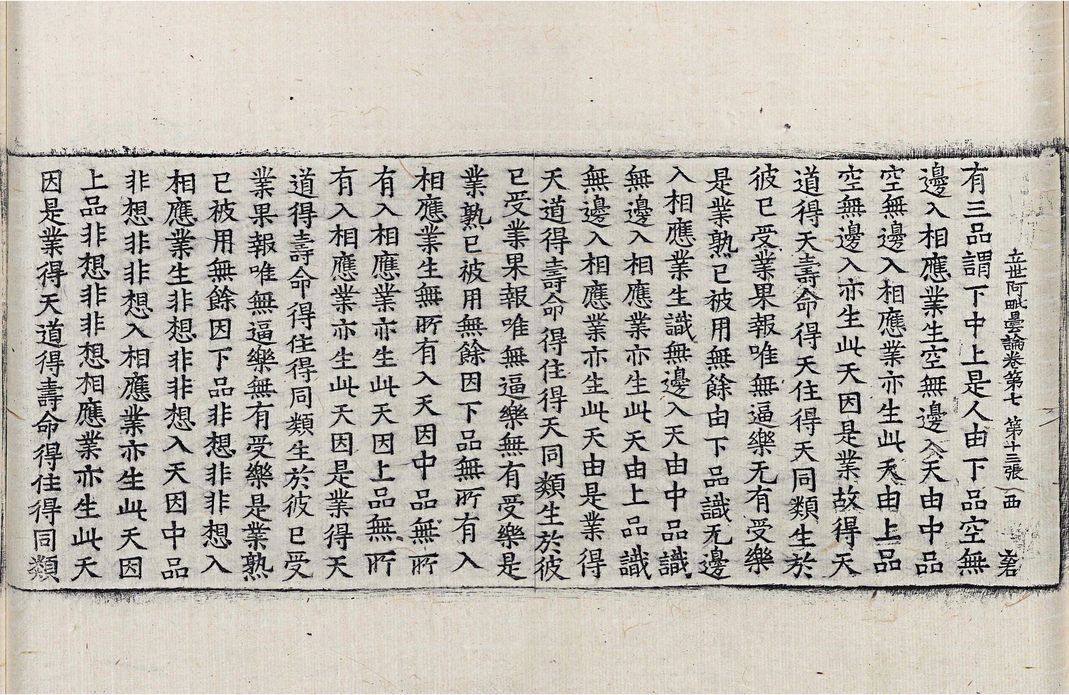 立世阿毗曇論卷第七 第十三張 西
有三品謂下中上是人由下品空無
邊入相應業生空無邊入天由中品
空無邊入相應業亦生此天由上品
空無邊入亦生此天因是業故得天
道得天壽命得天住得天同類生於
彼已受業果報唯無逼樂无有受樂
是業熟已被用無餘由下品識无邊
入相應業生識無邊入天由中品識
無邊入相應業亦生此天由上品識
無邊入相應業亦生此天由是業得
天道得壽命得住得天同類生於彼
已受業果報唯無逼樂無有受樂是
業熟已被用無餘因下品無所有入
相應業生無所有入天因中品無所
有入相應業亦生此天因上品無所
有入相應業亦生此天因是業得天
道得壽命得住得同類生於彼已受
業果報唯無逼樂無有受樂是業熟
已被用無餘因下品非想非非想入
相應業生非想非非想入天因中品
非想非非想入相應業亦生此天因
上品非想非非想相應業亦生此天
因是業得天道得壽命得住得同類